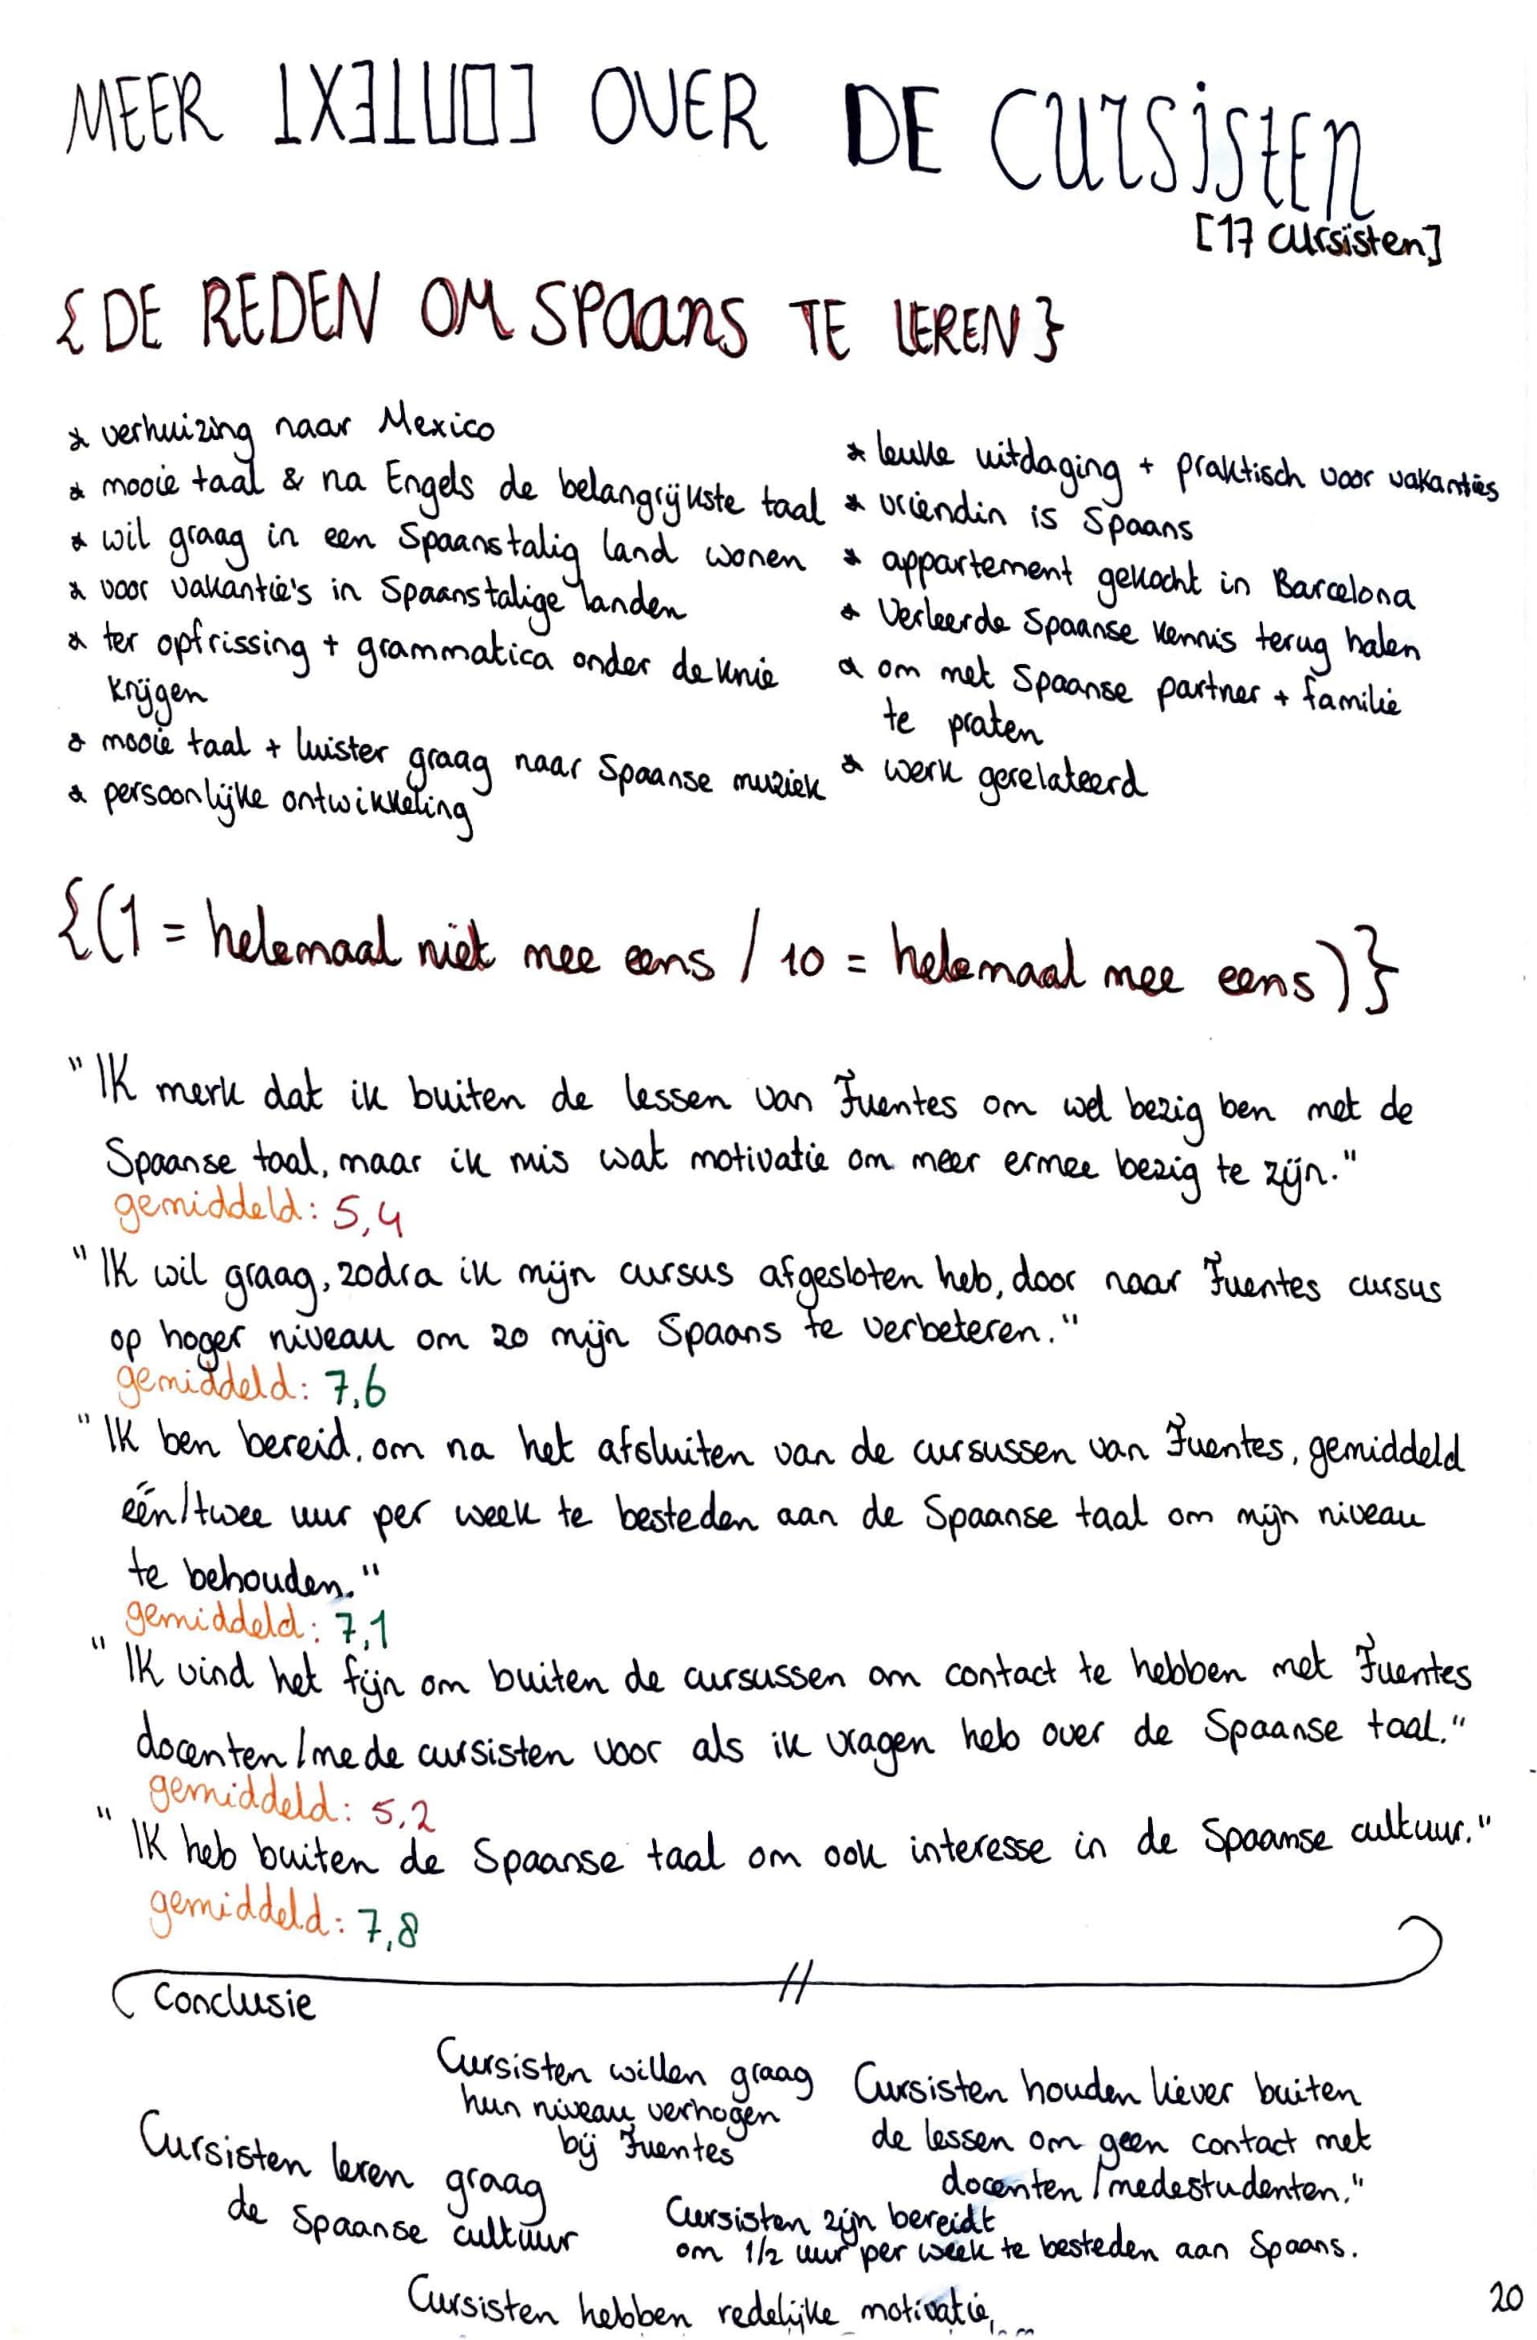 MEER CONTEXT OVER DE CURSISTEN
[17 cursisten]
{DE REDEN OM SPAANS TE LEREN}
* verhuizing naar Mexico
* mooie taal & na Engels de belangrijkste taal
* wil graag in een Spaanstalig land wonen
* voor vakantie's in Spaanstalige landen
* ter opfrissing + grammatica onder de knie
krijgen
* mooie taal + luister graag naar Spaanse muziek
* persoonlijke ontwikkeling
* leuke uitdaging + praktisch voor vakanties
* vriendin is Spaans
* appartement gekocht in Barcelona
* Verleerde Spaanse kennis terug halen
* om met Spaanse partner + familie
te praten
* werk gerelateerd
{(1 = helemaal niet mee eens / 10 = helemaal mee eens)}
"Ik merk dat ik buiten de lessen van Fuentes om wel bezig ben met de
Spaanse taal, maar ik mis wat motivatie om meer ermee bezig te zijn."
gemiddeld: 5,4
"Ik wil graag, zodra ik mijn cursus afgesloten heb, door naar Fuentes cursus
op hoger niveau om zo mijn Spaans te verbeteren."
gemiddeld: 7,6
"Ik ben bereid, om na het afsluiten van de cursussen van Fuentes, gemiddeld
één/twee uur per week te besteden aan de Spaanse taal om mijn niveau
te behouden."
gemiddeld: 7,1
"Ik vind het fijn om buiten de cursussen om contact te hebben met Fuentes
docenten/mede cursisten voor als ik vragen heb over de Spaanse taal."
gemiddeld: 5,2
"Ik heb buiten de Spaanse taal om ook interesse in de Spaanse cultuur."
gemiddeld: 7,8
Conclusie
Cursisten willen graag
hun niveau verhogen
bij Fuentes
Cursisten houden liever buiten
de lessen om geen contact met
docenten/medestudenten."
Cursisten leren graag
de Spaanse cultuur
Cursisten zijn bereidt
om 1/2 uur per week te besteden aan Spaans.
Cursisten hebben redelijke motivatie,...
20